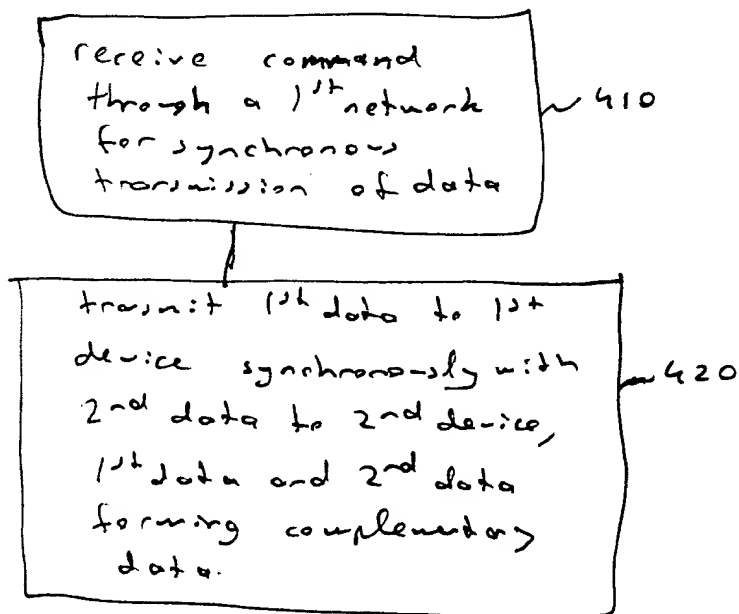 receive command
through a 1st network
for synchronous
transmission of data
410
transmit 1st data to 1st
device synchronously with
2nd data to 2nd device,
1st data and 2nd data
forming complementary
data.
420